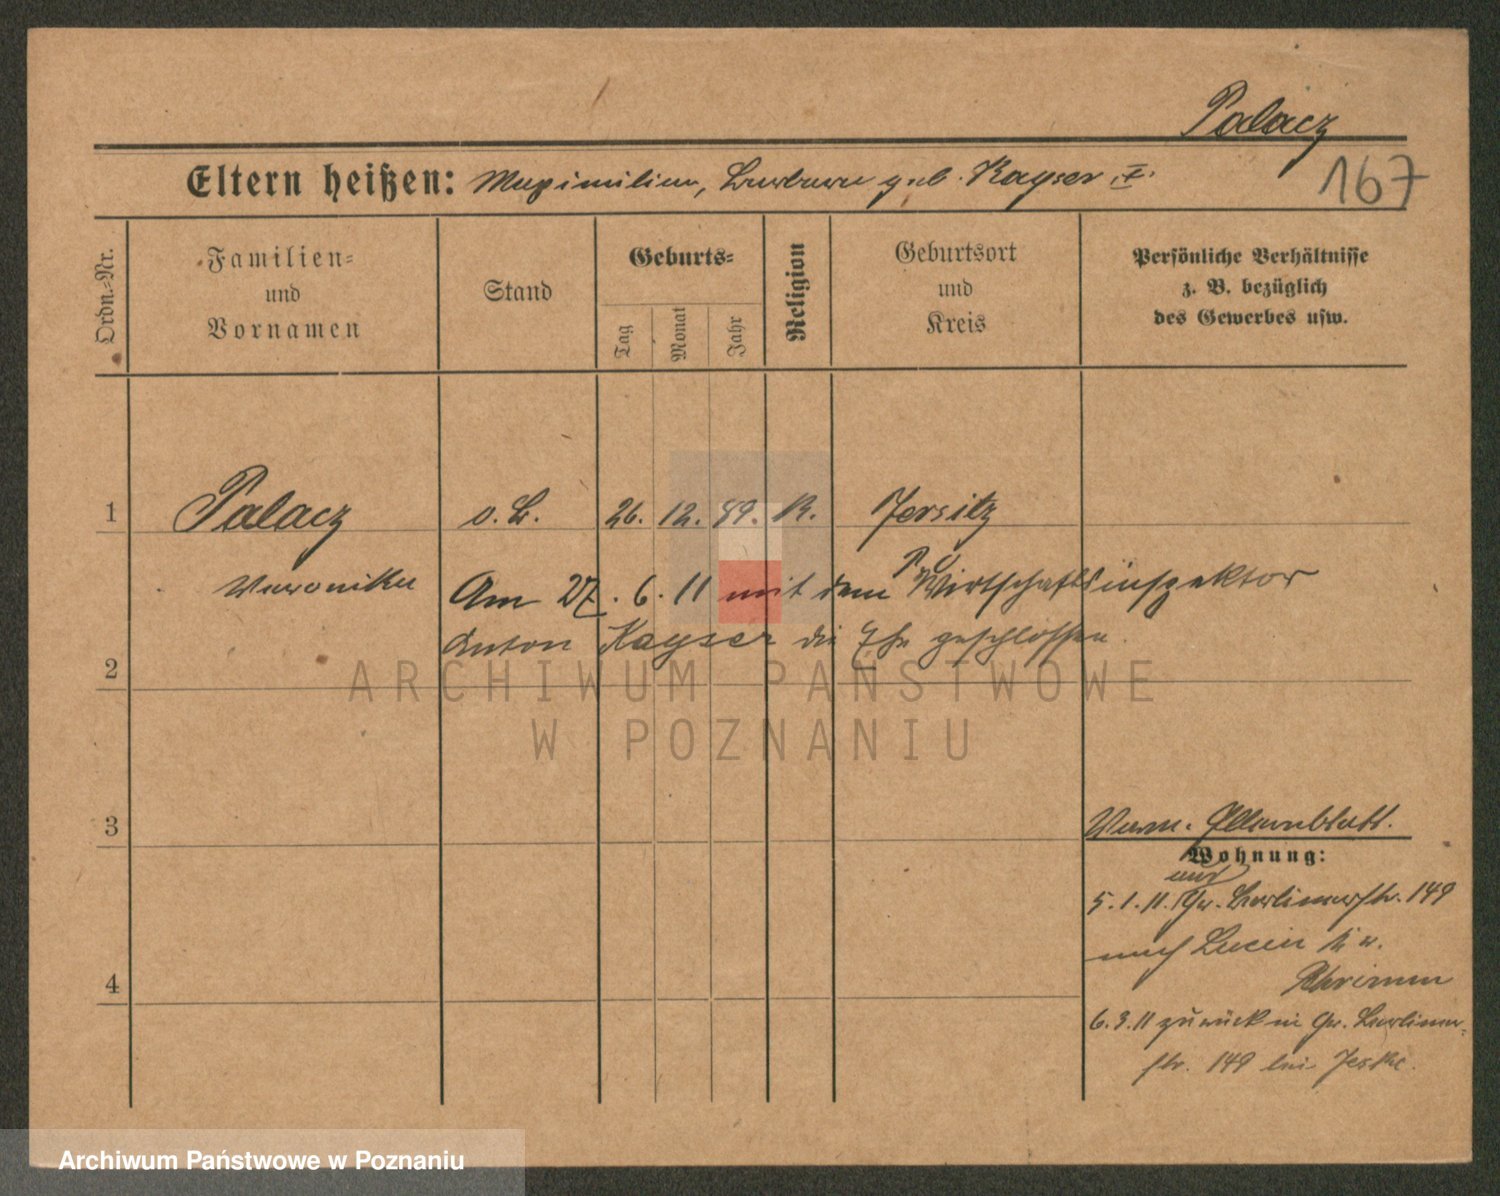 Palacz
Eltern heißen: Maximilian, Barbara geb. Kayser
167
Ordn.=Nr.
Familien=
und
Vornamen
Stand
Geburts=
Tag
Monat
Jahr
Religion
Geburtsort
und
Kreis
Persönliche Verhältnisse
z. B. bezüglich
des Gewerbes usw.
1
Palacz
o. B.
26. 12. 89. K.
Jersitz
Veronika
Am 27. 6. 11 mit dem Wirtschaftsinspektor
Anton Kayser die Ehe geschlossen.
2
ARCHIWUM PAŃSTWOWE
W POZNANIU
3
Elternblatt.
Wohnung:
5. 1. 11. Gr. Berlinerstr. 149
nach
4
Schrimm
6. 3. 11 zurück in Gr. Berliner-
str. 149 bei Jeske.
Archiwum Państwowe w Poznaniu